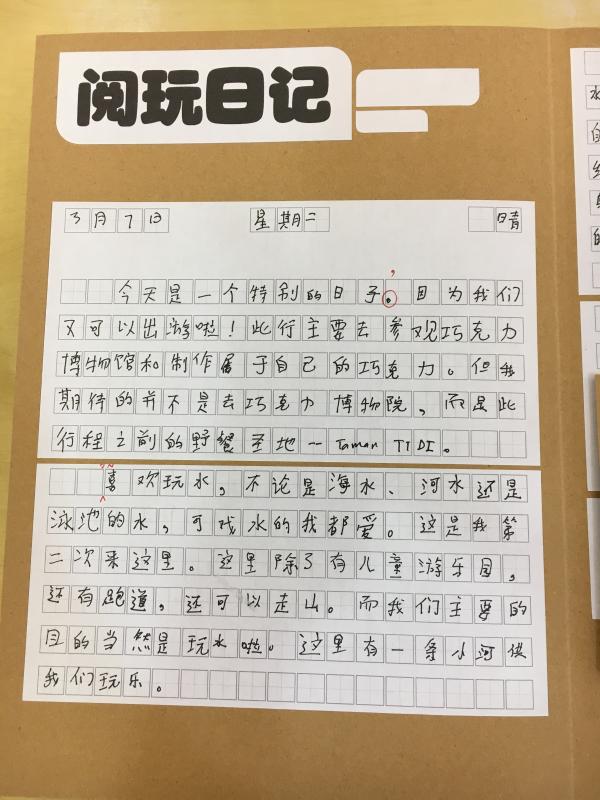 阅玩日记
3月7日 星期二 晴
今天是一个特别的日子。因为我们
又可以出游啦！此行主要去参观巧克力
博物馆和制作属于自己的巧克力。但我
期待的并不是去巧克力博物院，而是此
行程之前的野餐圣地一Taman TTDI。
喜欢玩水，不论是海水、河水还是
泳池的水，可戏水的我都爱。这是我第
二次来这里。这里除了有儿童游乐园，
还有跑道，还可以走山。而我们主要的
目的当然是玩水啦。这里有一条小河供
我们玩乐。